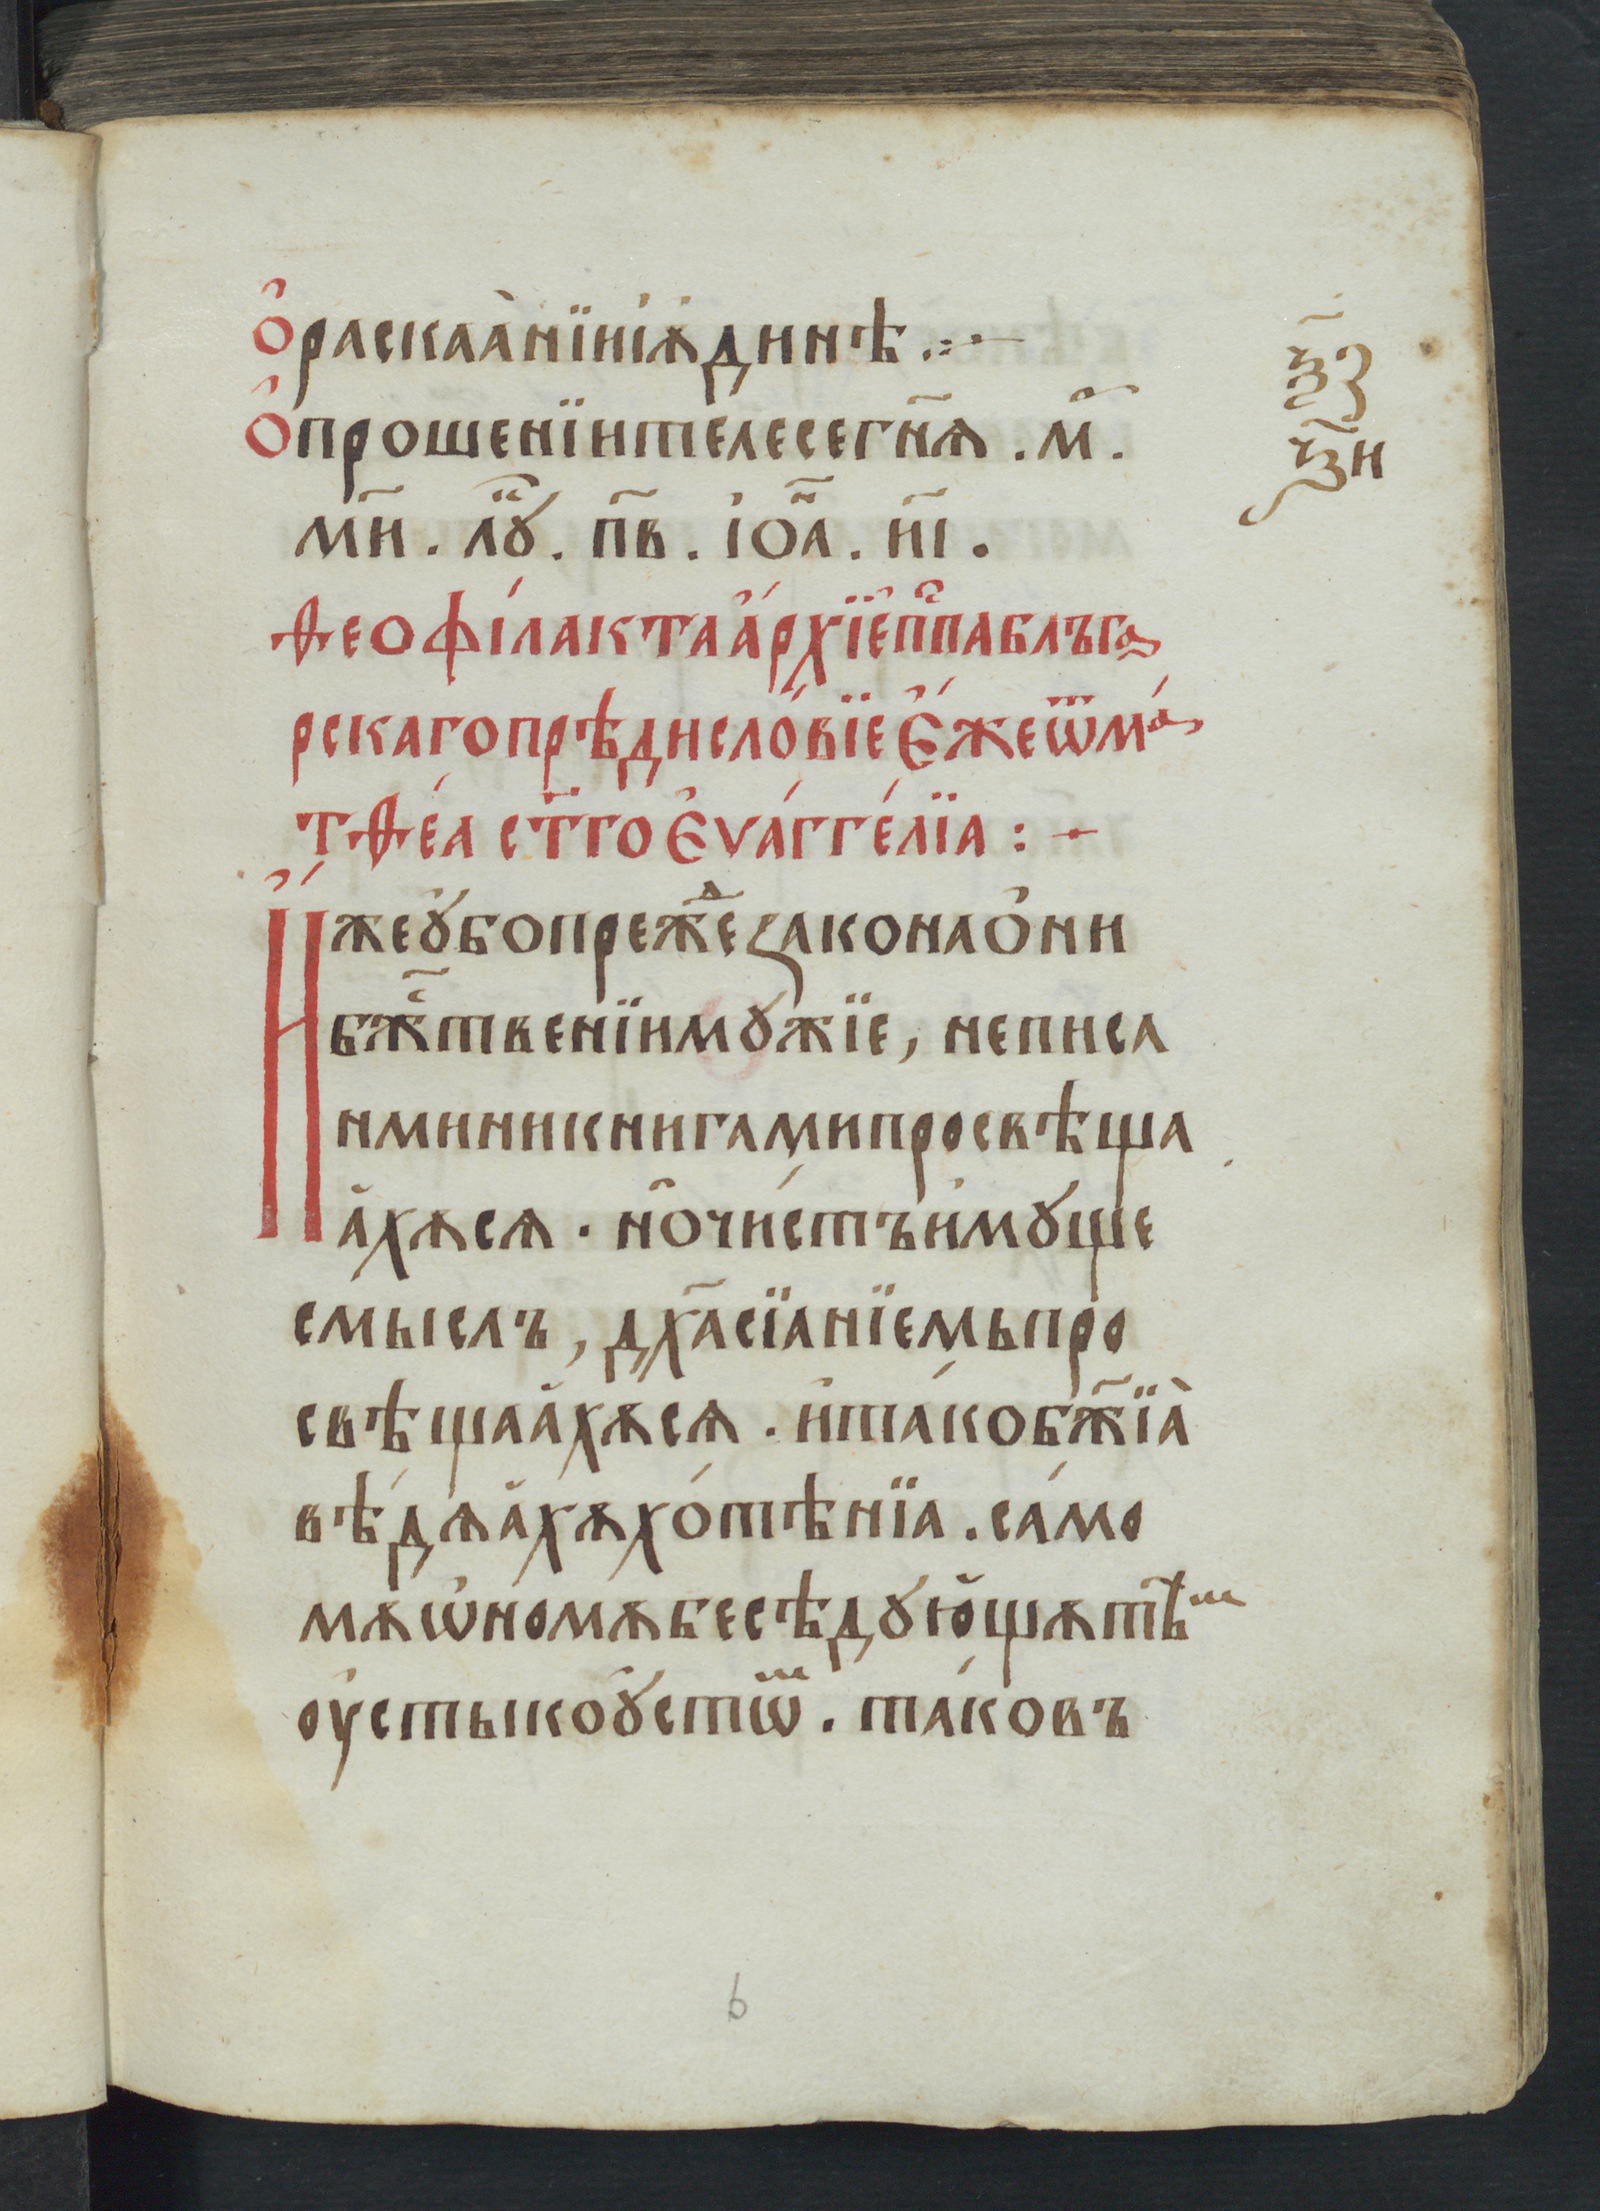 о҆раскаа̀нїиі́ꙗ҆динѣ .:-
о҆прошенїителесегн҃ѧ . м҃ .
м҃и . лꙋ҃ . п҃в . і҆ѡ҃а . н҃і .
ѳеофі́лактаа҆́рхїе҆пⷭ҇пабльга
рскагопрѣдисло́вїеє҆́жеѿма
тѳе́а ст҃гоє҆ѵа́гге́лїа : -
И҆́жеꙋ҆бопреждⷷеꙁаконао҆ни
бжⷭ҇твенїимꙋжїе, неписа
нминикнигамипросвѣща
а҆хѫсѧ . но҆чи́стъи҆мꙋще
смыслъ, дх҃асїанїемьпро
свѣщаа҆хѫсѧ . и҆та́кобж҃їа̀
вѣ́дѧа҆хѫхо́тѣнїа . са́мо
мѫѡ҆номѫбесѣдꙋю҆щѫтѣⷨ
оу҆стыкоꙋ҆стѡⷨ . та́ковъ
6